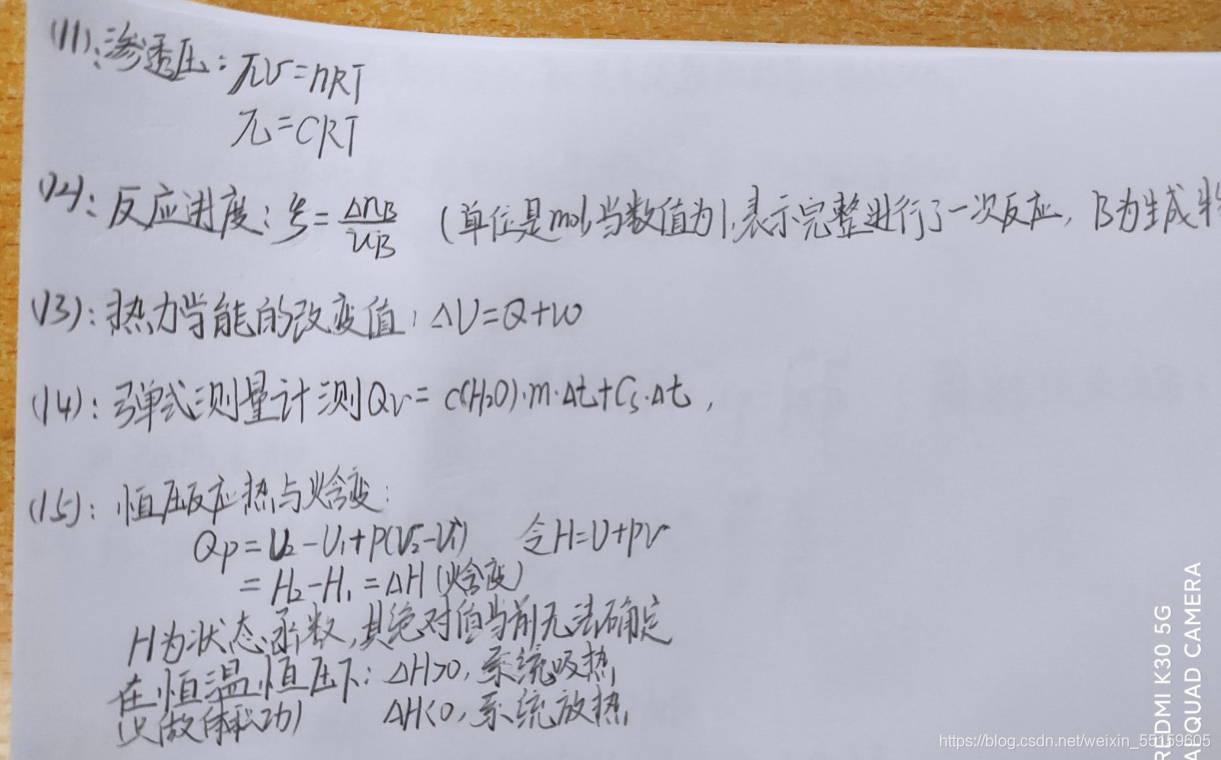 (11):渗透压:πV=nRT
π=CRT
(12):反应进度:ξ=ΔnB/νB (单位是mol,当数值为1,表示完整进行了一次反应,B为生成
(13):热力学能的改变值:ΔU=Q+W
(14):弹式测量计测Qv=c(H₂O)·m·Δt+Cs·Δt,
(15):恒压反应热与焓变:
Qp=U₂-U₁+P(V₂-V₁) 令H=U+PV
=H₂-H₁=ΔH(焓变)
H为状态函数,其绝对值当前无法确定
在恒温恒压下:ΔH>0,系统吸热
(只做体积功) ΔH<0,系统放热
REDMI K30 5G
AI QUAD CAMERA
https://blog.csdn.net/weixin_55159605